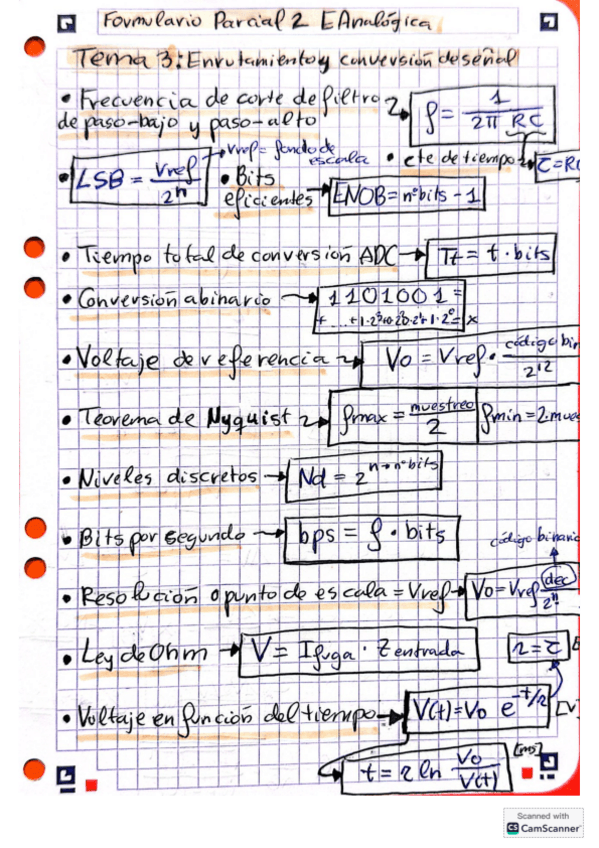 Formulario Parcial 2 EAnalógica
Tema 3: Enrutamiento y conversión de señal
• Frecuencia de corte de filtro de paso-bajo y paso-alto → f = 1 / 2π RC
• LSB = Vref / 2^n → Vref = fondo de escala
• cte de tiempo → τ = RC
• Bits eficientes → ENOB = nº bits - 1
• Tiempo total de conversión ADC → Tt = t · bits
• Conversión a binario → 1101001 =
+ ... + 1·2³+0·2²+0·2¹+1·2⁰ = x
• Voltaje de referencia → Vo = Vref · código bin / 2^12
• Teorema de Nyquist → fmax = muestreo / 2 fmin = 2·mue
• Niveles discretos → Nd = 2^n → nº bits
• Bits por segundo → bps = f · bits
código binario
• Resolución o punto de escala = Vref → Vo = Vref dec / 2^n
• Ley de Ohm → V = Ifuga · Zentrada
r = τ
• Voltaje en función del tiempo → V(t) = Vo e^-t/r [V]
t = r ln Vo / V(t) [ms]
Scanned with
CS CamScanner